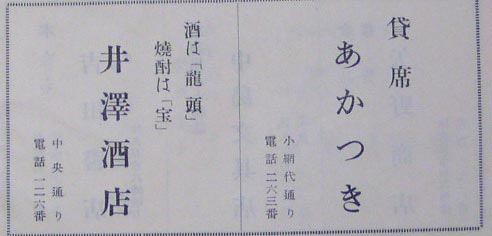 貸席
あかつき
小網代通り
電話二六三番
酒は「龍頭」
焼酎は「宝」
井澤酒店
中央通り
電話一二六番